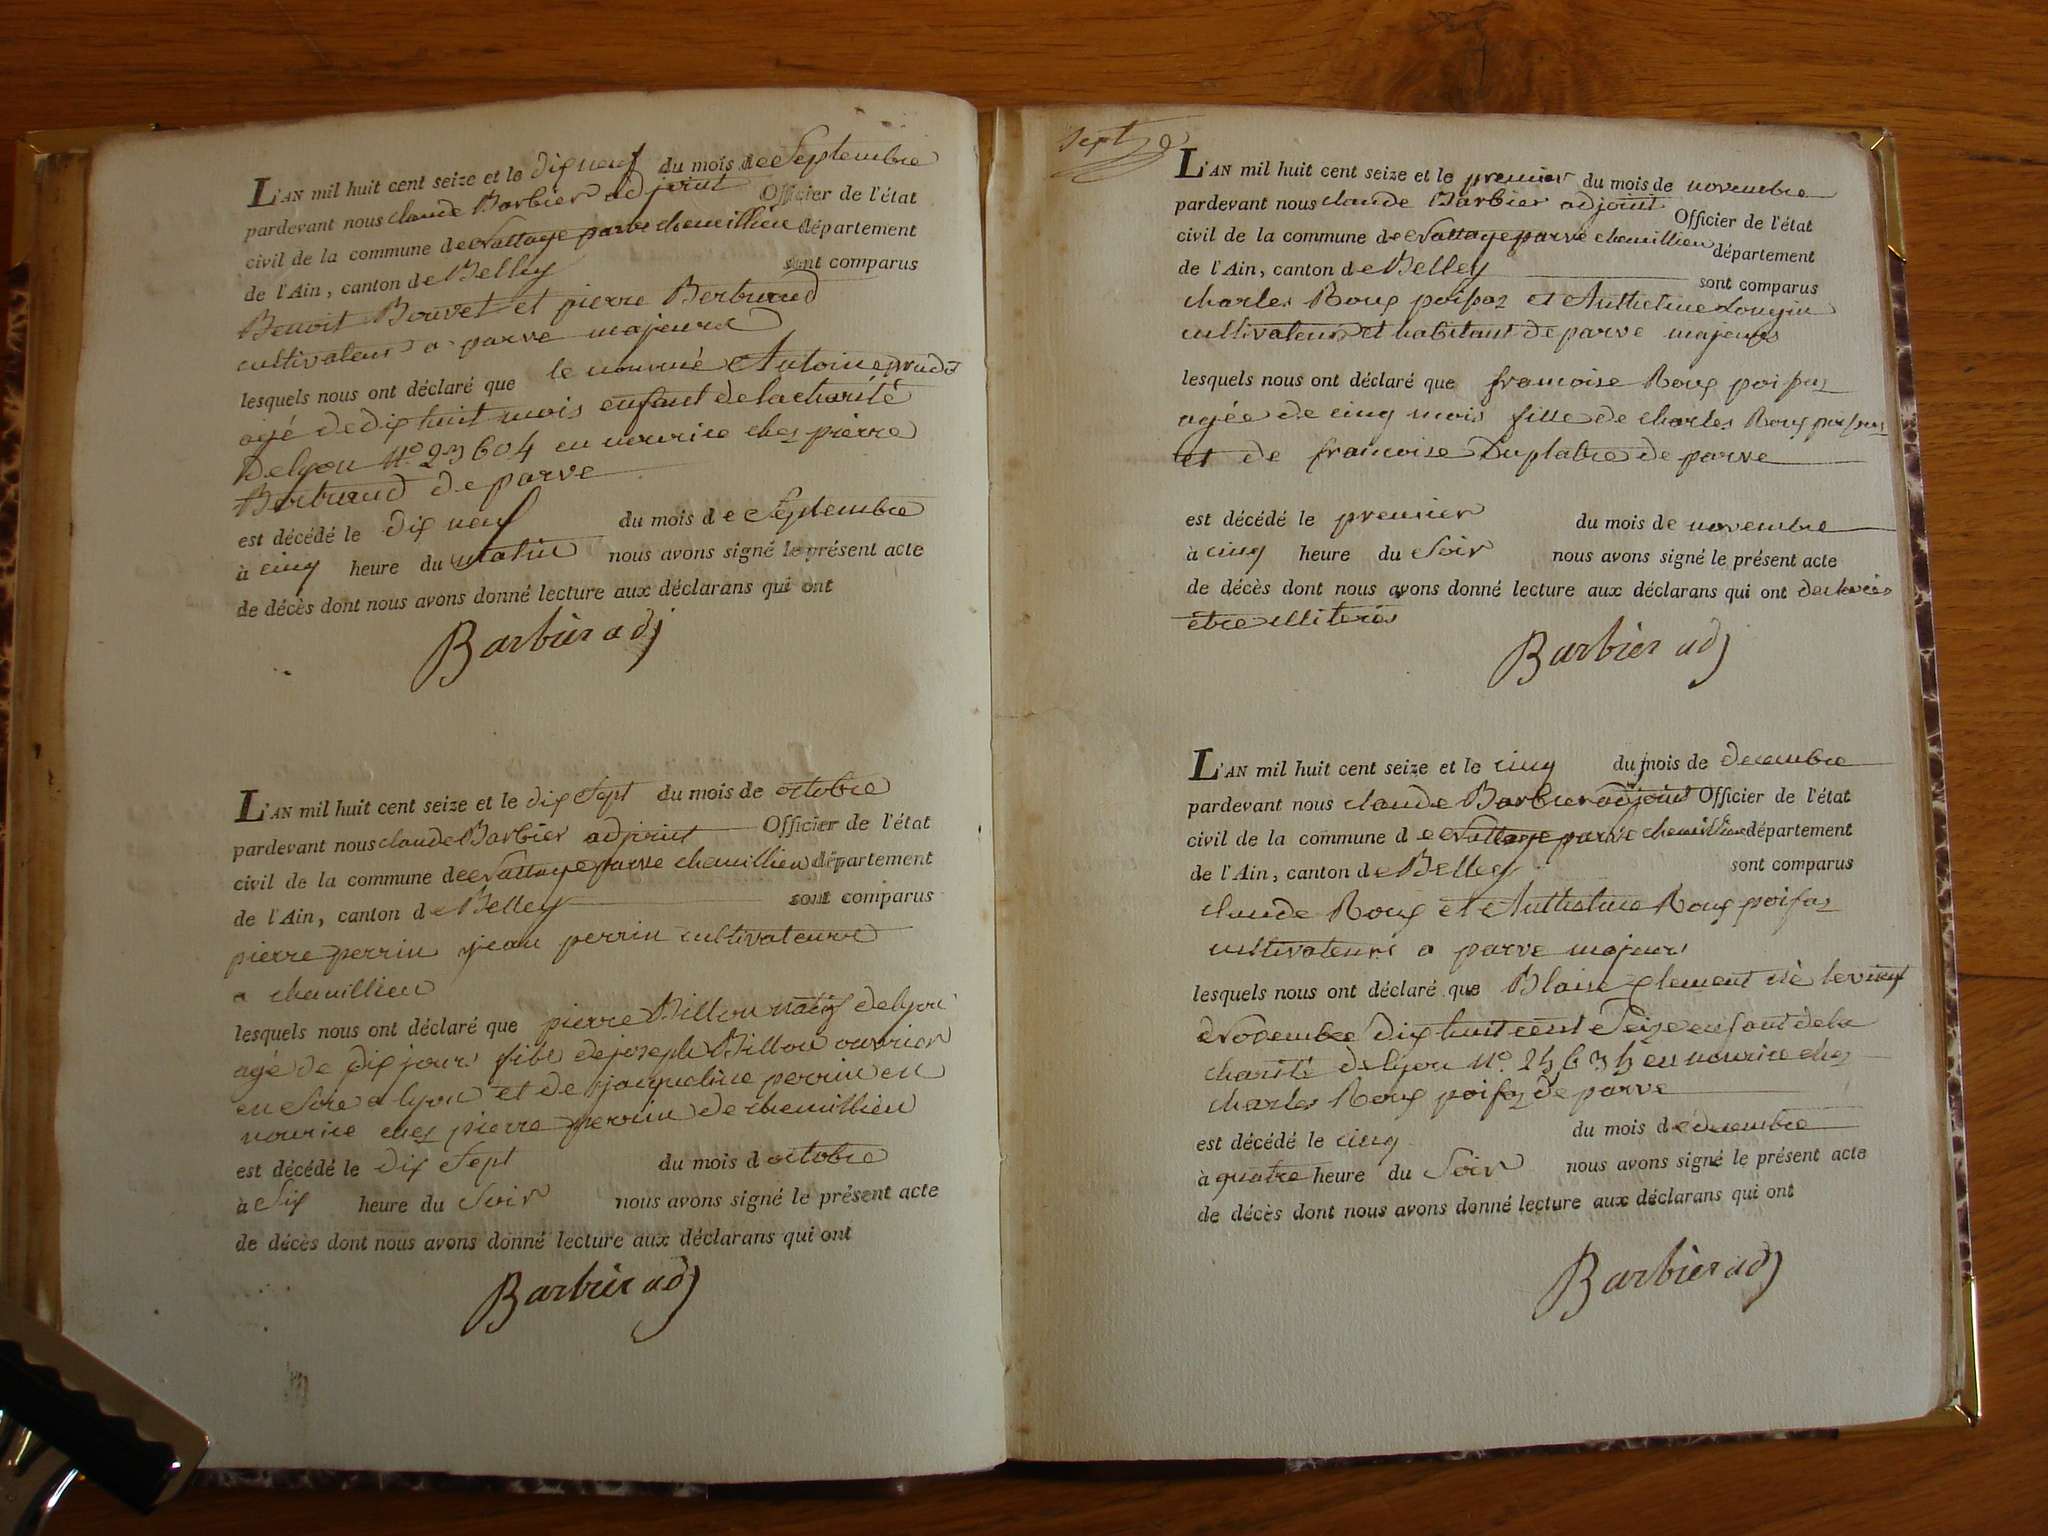 L'AN mil huit cent seize et le dix neuf du mois de Septembre
pardevant nous claude Barbier adjoint Officier de l'état
civil de la commune de Nattage parve chemillieu département
de l'Ain, canton de Belley sont comparus
Benoit Bouvet et pierre Bertrand
cultivateurs a parve majeurs
lesquels nous ont déclaré que le nommé Antoine
agé de dix huit mois enfant de la charité
de lyon N.o 23604 en nourice chez pierre
Bertrand de parve
est décédé le dix neuf du mois de Septembre
à cinq heure du matin nous avons signé le présent acte
de décès dont nous avons donné lecture aux déclarans qui ont
Barbier adj
L'AN mil huit cent seize et le dix Sept du mois de octobre
pardevant nous claude Barbier adjoint Officier de l'état
civil de la commune de Nattage parve chemillieu département
de l'Ain, canton de Belley sont comparus
pierre perrin jean perrin cultivateurs
a chemillieu
lesquels nous ont déclaré que pierre Billon natif de lyon
agé de dix jours fils de joseph Billon ouvrier
en Soie a lyon et de jacqueline perrin en
nourice chez pierre perrin de chemillieu
est décédé le dix Sept du mois d octobre
à Six heure du Soir nous avons signé le présent acte
de décès dont nous avons donné lecture aux déclarans qui ont
Barbier adj
Sept
L'AN mil huit cent seize et le premier du mois de novembre
pardevant nous claude Barbier adjoint Officier de l'état
civil de la commune de Nattage parve chemillieu département
de l'Ain, canton de Belley sont comparus
charles Roux poifaz et Anthelme
cultivateurs et habitant de parve majeurs
lesquels nous ont déclaré que francoise Roux poifaz
agée de cinq mois fille de charles Roux poifaz
et de francoise Duplatre de parve
est décédé le premier du mois de novembre
à cinq heure du Soir nous avons signé le présent acte
de décès dont nous avons donné lecture aux déclarans qui ont declarés
etre illiteres
Barbier adj
L'AN mil huit cent seize et le cinq du mois de decembre
pardevant nous claude Barbier adjoint Officier de l'état
civil de la commune d e Nattage parve chemillieu département
de l'Ain, canton de Belley sont comparus
claude Roux et Anthelme Roux poifaz
cultivateurs a parve majeurs
lesquels nous ont déclaré que Blaise clement né le vingt
Novembre dix huit cent Seize enfant de la
charité de lyon N.o en nourice chez
charles Roux poifaz de parve
est décédé le cinq du mois de decembre
à quatre heure du Soir nous avons signé le présent acte
de décès dont nous avons donné lecture aux déclarans qui ont
Barbier adj